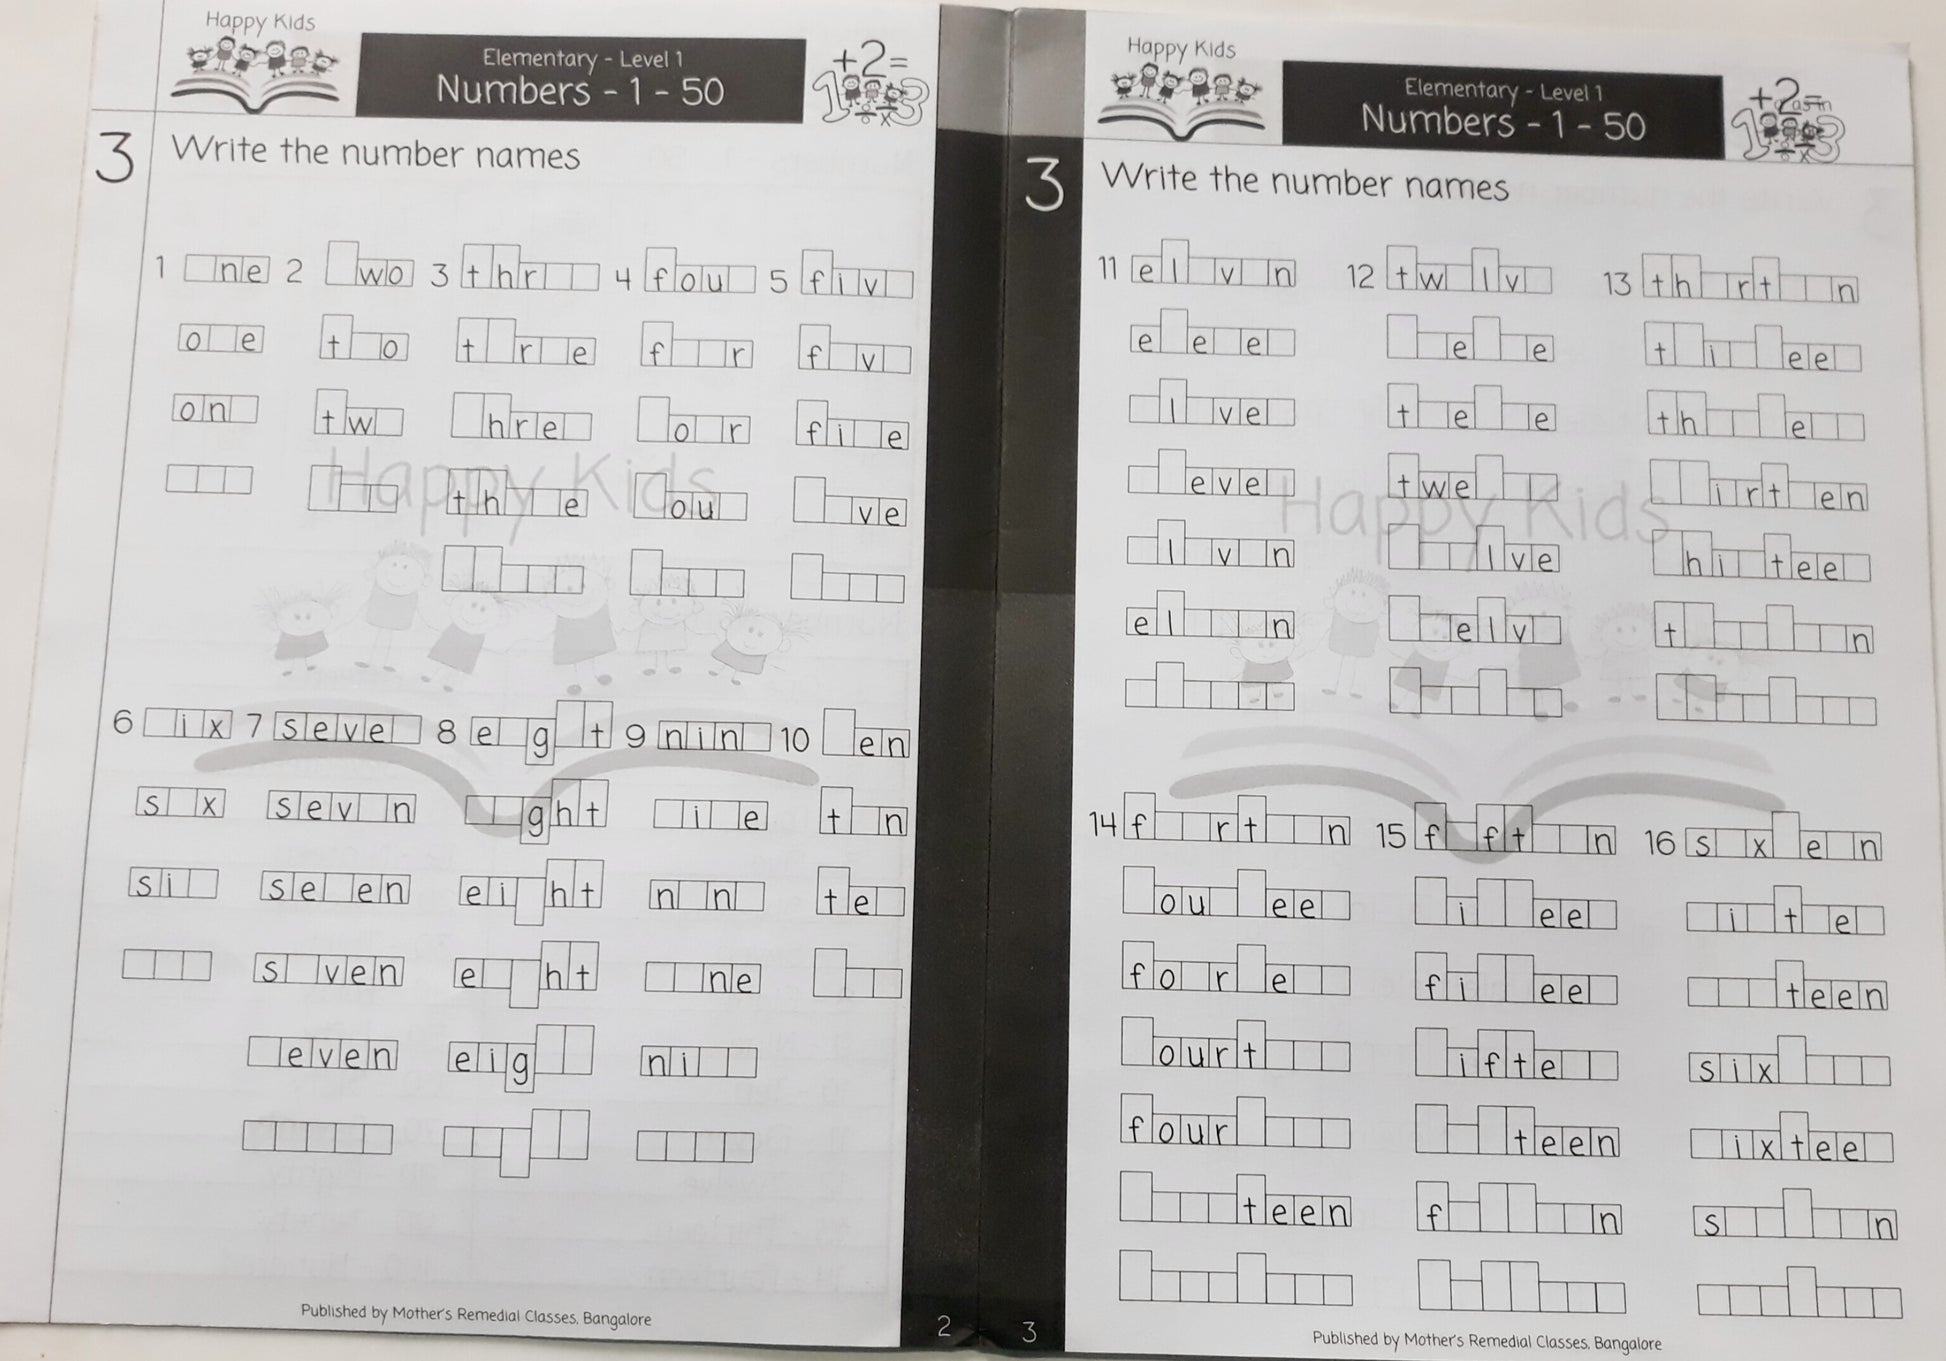 Happy Kids
Elementary - Level 1
Numbers - 1 - 50
+2=
1 3
÷ x
3 Write the number names
1 ne 2 wo 3 thr 4 fou 5 fiv
o e t o t r e f r f v
on tw hre o r fi e
th e ou ve
Happy Kids
6 ix 7 seve 8 e g t 9 nin 10 en
s x sev n ght i e t n
si se en ei ht n n te
s ven e ht ne
even eig ni
Published by Mother's Remedial Classes, Bangalore
2
Happy Kids
Elementary - Level 1
Numbers - 1 - 50
+2=
1 3
÷ x
3 Write the number names
11 el v n 12 tw lv 13 th rt n
e e e e e t i ee
l ve t e e th e
eve twe irt en
Happy Kids
l v n lve hi tee
el n elv t n
14 f rt n 15 f ft n 16 s x e n
ou ee i ee i t e
fo r e fi ee teen
ourt ifte six
four teen ixtee
teen f n s n
3
Published by Mother's Remedial Classes, Bangalore